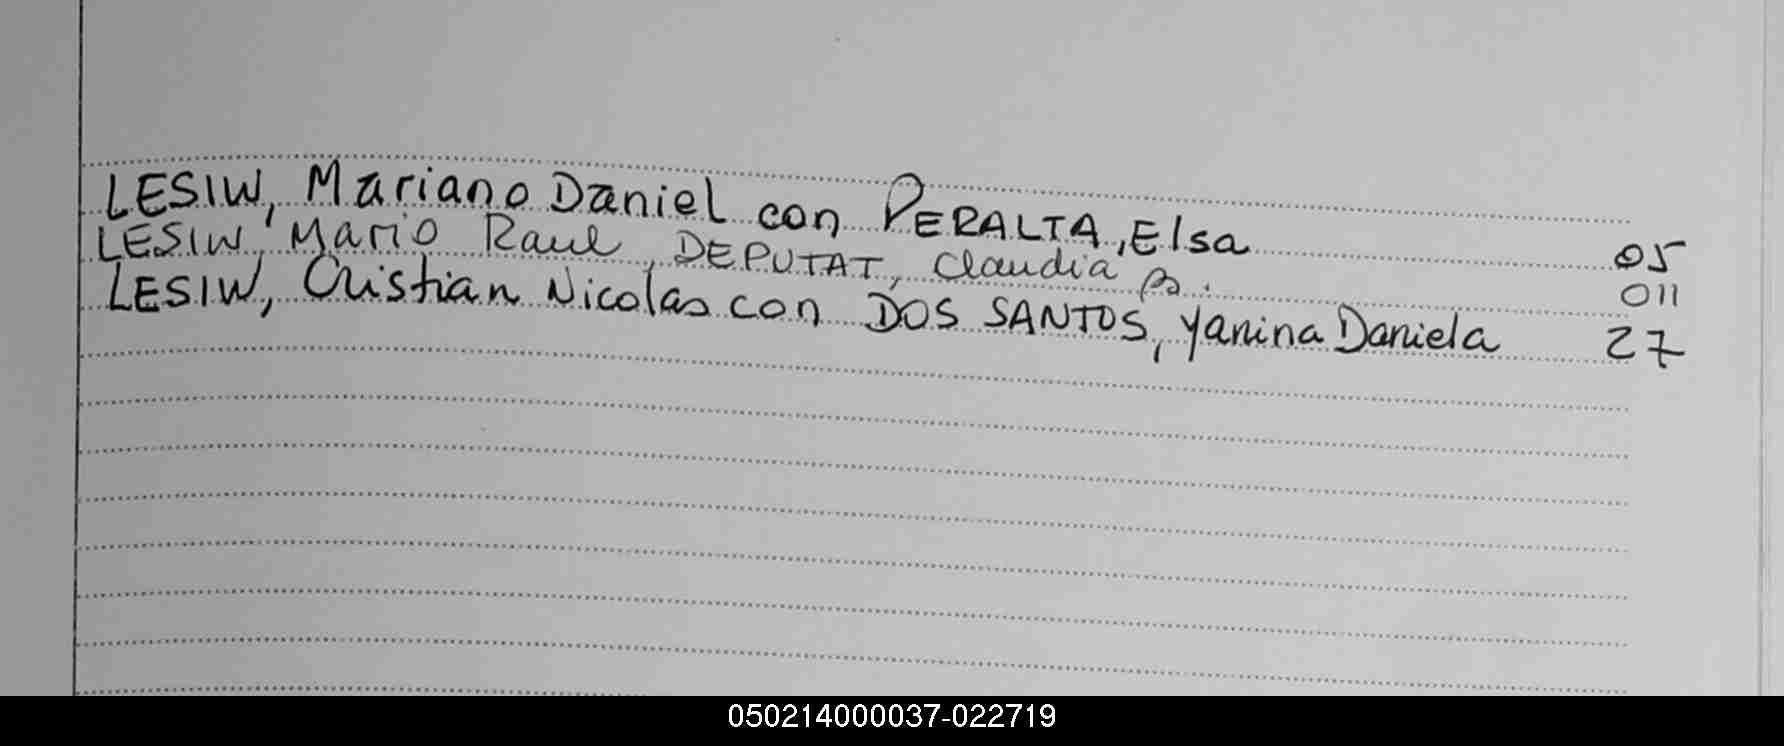 LESIW, Mariano Daniel con PERALTA, Elsa 05
LESIW, Mario Raul, DEPUTAT, Claudia B. 011
LESIW, Cristian Nicolas con DOS SANTOS, Yanina Daniela 27
050214000037-022719